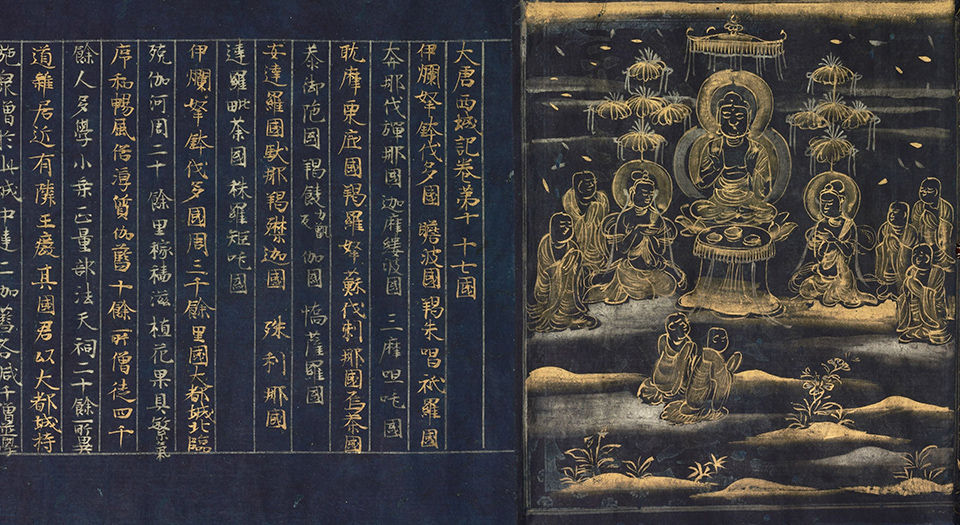 大唐西域記卷苐十 十七國
伊爛拏鉢伐多國 瞻波國 羯朱唱祇羅國
奔那伐彈那國 迦摩縷波國 三摩呾吒國
耽摩栗底國 羯羅拏蘇伐剌那國 烏荼國
恭御陁國 羯 伽國 憍薩羅國
安達羅國 馱那羯磔迦國 珠利耶國
達羅毗荼國 秣羅矩吒國
伊爛拏鉢伐多國周三千餘里國大都城北臨
殑伽河周二十餘里稼穡滋植花果具繁氣
序和暢風俗淳質伽藍十餘所僧徒四千
餘人多學小乘正量部法天祠二十餘所異
道雜居近有隣王廢其國君以大都城持
施眾僧於此城中建二伽藍各減千僧並學